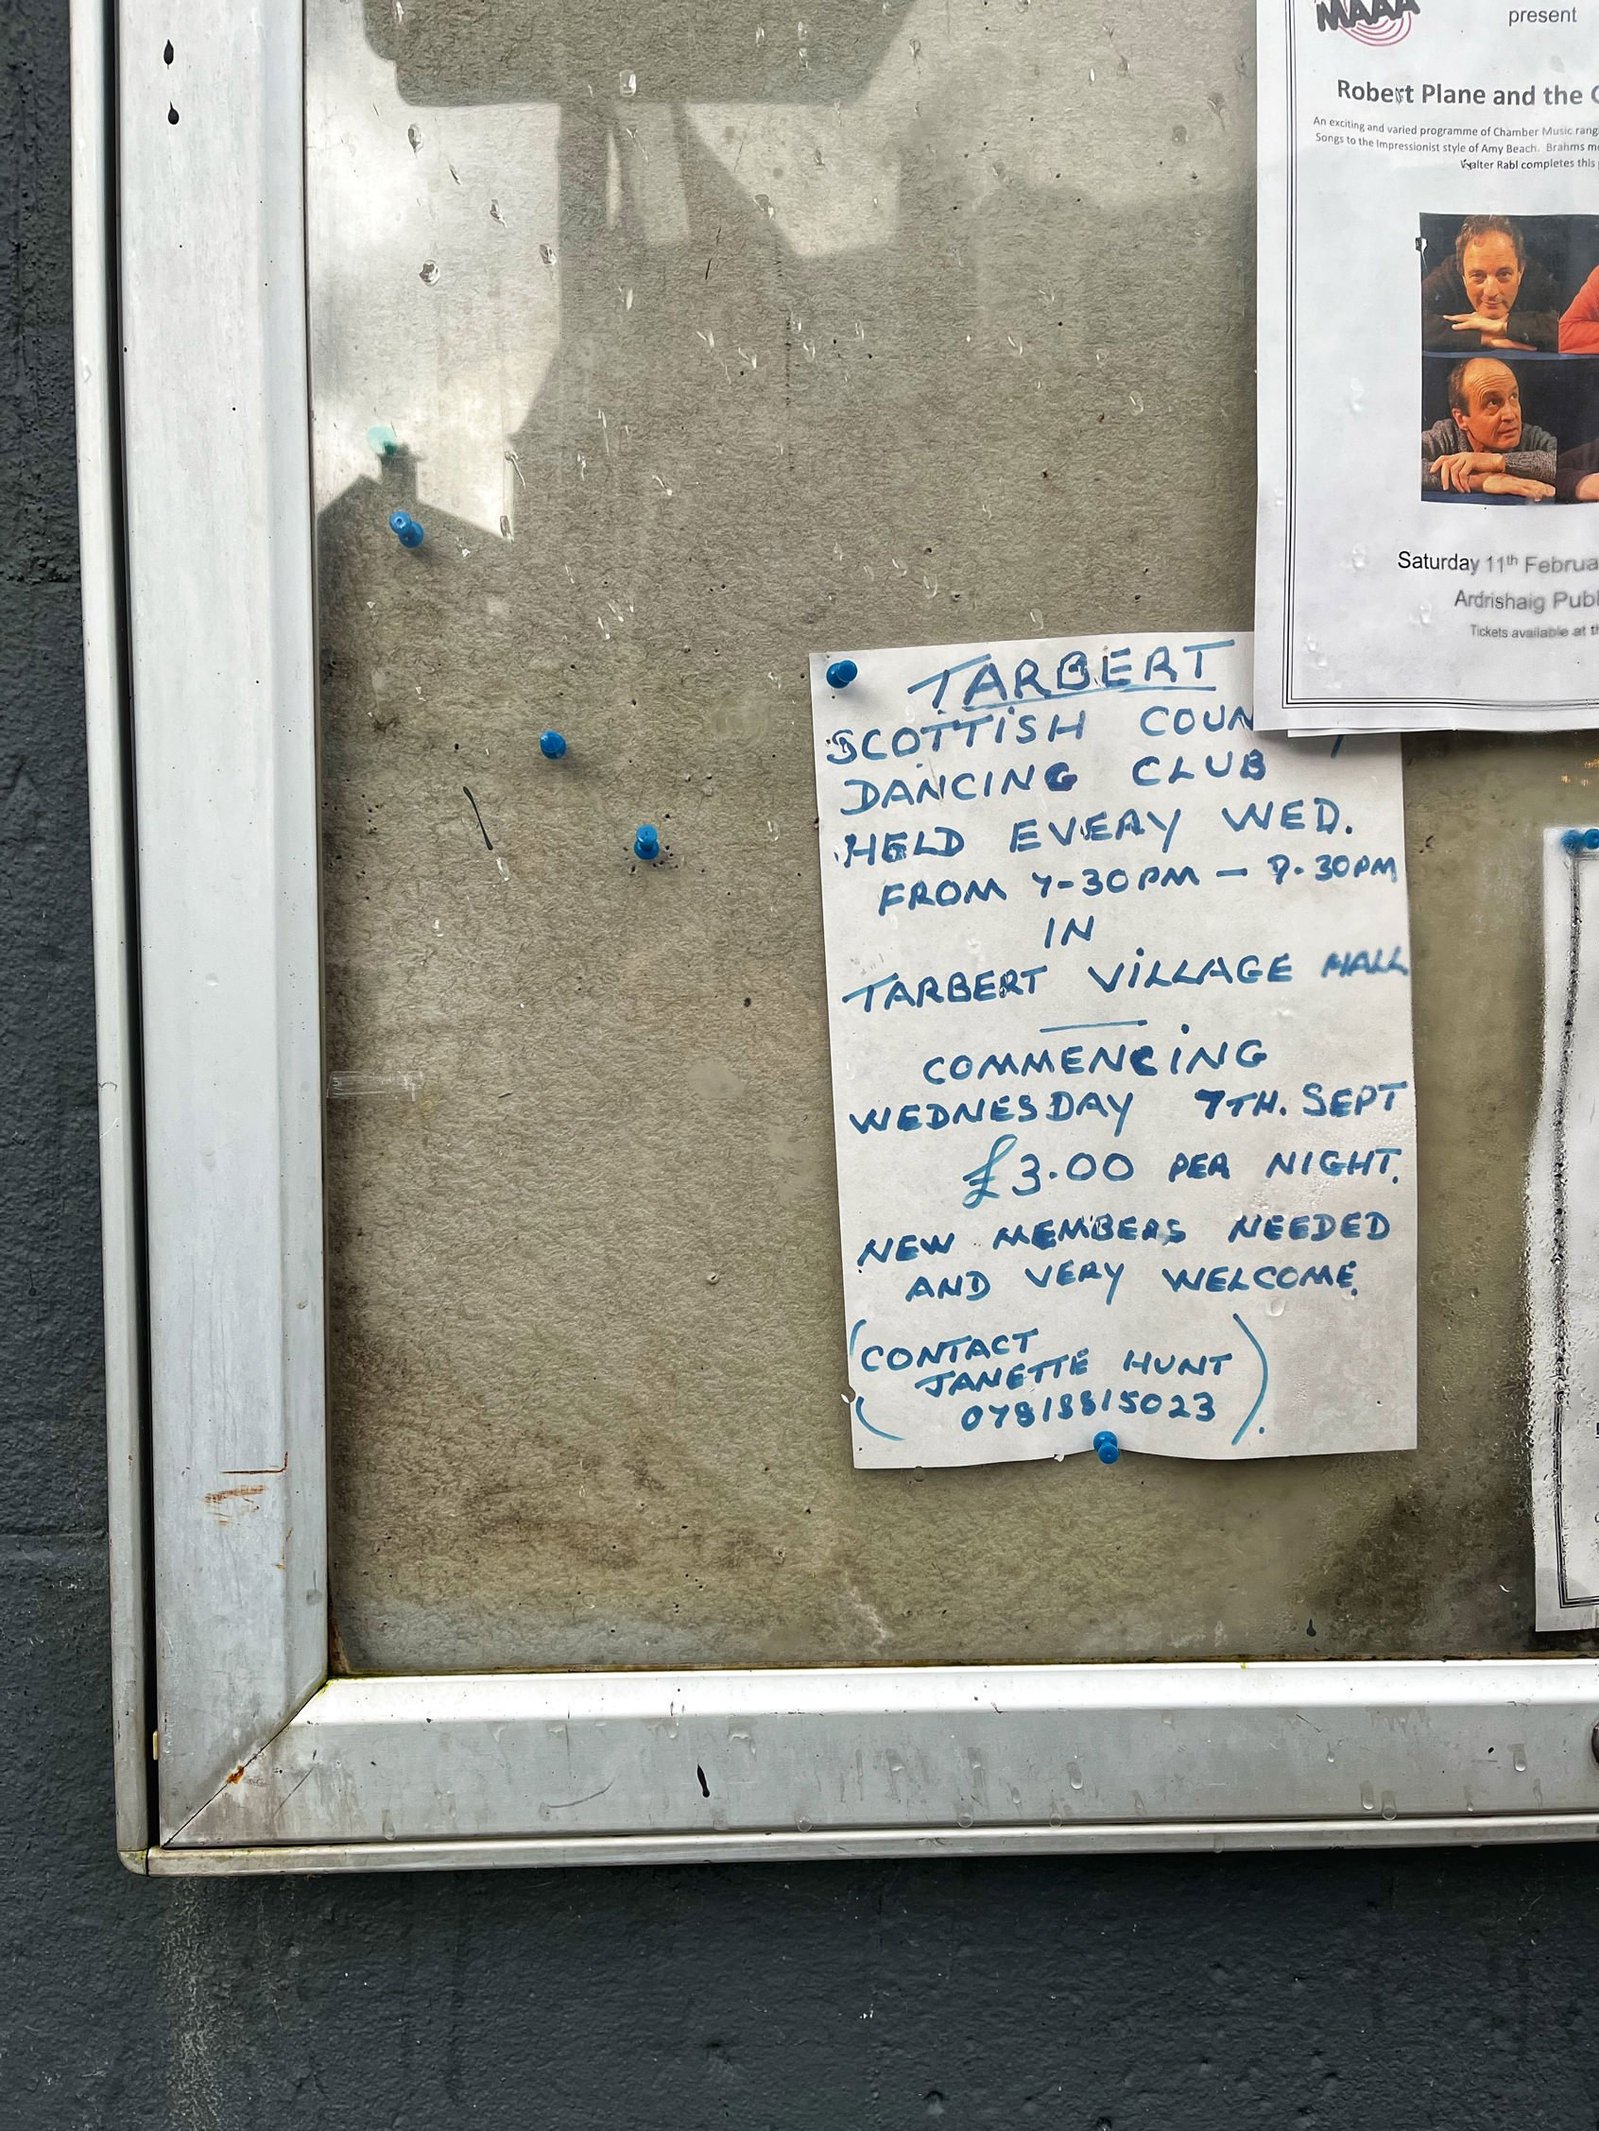 MAAA
present
Robert Plane and the
An exciting and varied programme of Chamber Music rang
Songs to the Impressionist style of Amy Beach. Brahms
Walter Rabl completes this
Saturday 11th Februa
Ardrishaig Publ
Tickets available at th
TARBERT
SCOTTISH COUN
DANCING CLUB
HELD EVERY WED.
FROM 7-30PM - 9.30PM
IN
TARBERT VILLAGE HALL
COMMENCING
WEDNESDAY 7TH. SEPT
£3.00 PER NIGHT.
NEW MEMBERS NEEDED
AND VERY WELCOME.
(CONTACT
JANETTE HUNT
07818815023).